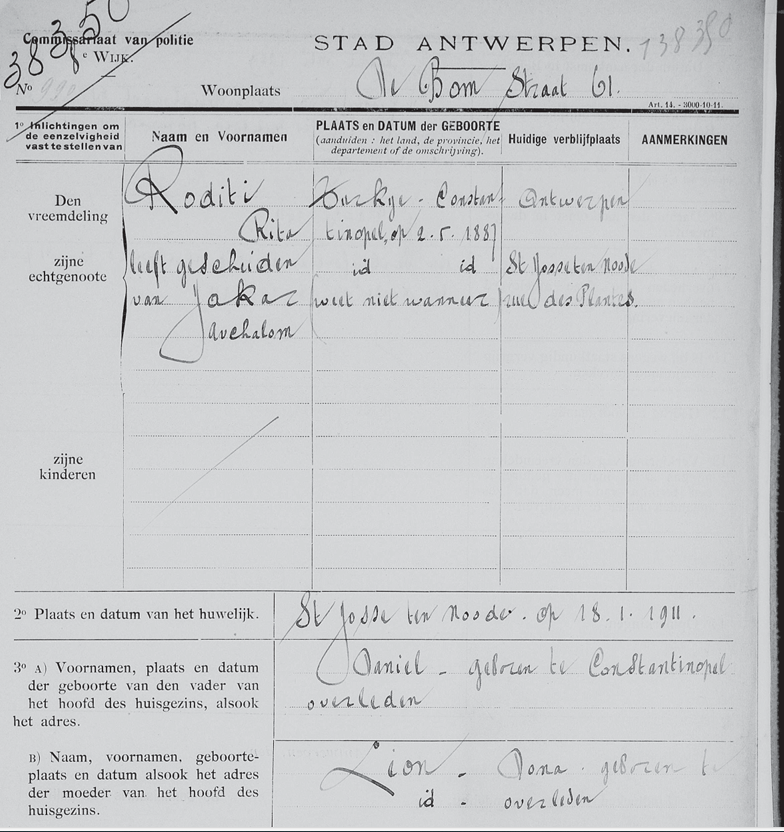 38350
Commissariaat van politie
e WIJK.
STAD ANTWERPEN.
138350
No
Woonplaats De Bom Straat 61.
Art. 14. - 3000-10-11.
1o Inlichtingen om de eenzelvigheid vast te stellen van
Naam en Voornamen
PLAATS en DATUM der GEBOORTE
(aanduiden : het land, de provincie, het departement of de omschrijving).
Huidige verblijfplaats
AANMERKINGEN
Den vreemdeling
Roditi Turkye - Constan- Antwerpen
Rita tinopel, op 2.5.1887
zijne echtgenoote
leeft gescheiden id id St Josse ten Noode
van Jakar weet niet wanneer rue des Plantes.
Avchalom
zijne kinderen
2o Plaats en datum van het huwelijk.
St Josse ten Noode. op 18.1.1911.
3o A) Voornamen, plaats en datum
der geboorte van den vader van
het hoofd des huisgezins, alsook
het adres.
Daniel - geboren te Constantinopel
overleden
B) Naam, voornamen, geboorte-
plaats en datum alsook het adres
der moeder van het hoofd des
huisgezins.
Lion - Dona - geboren te
id - overleden